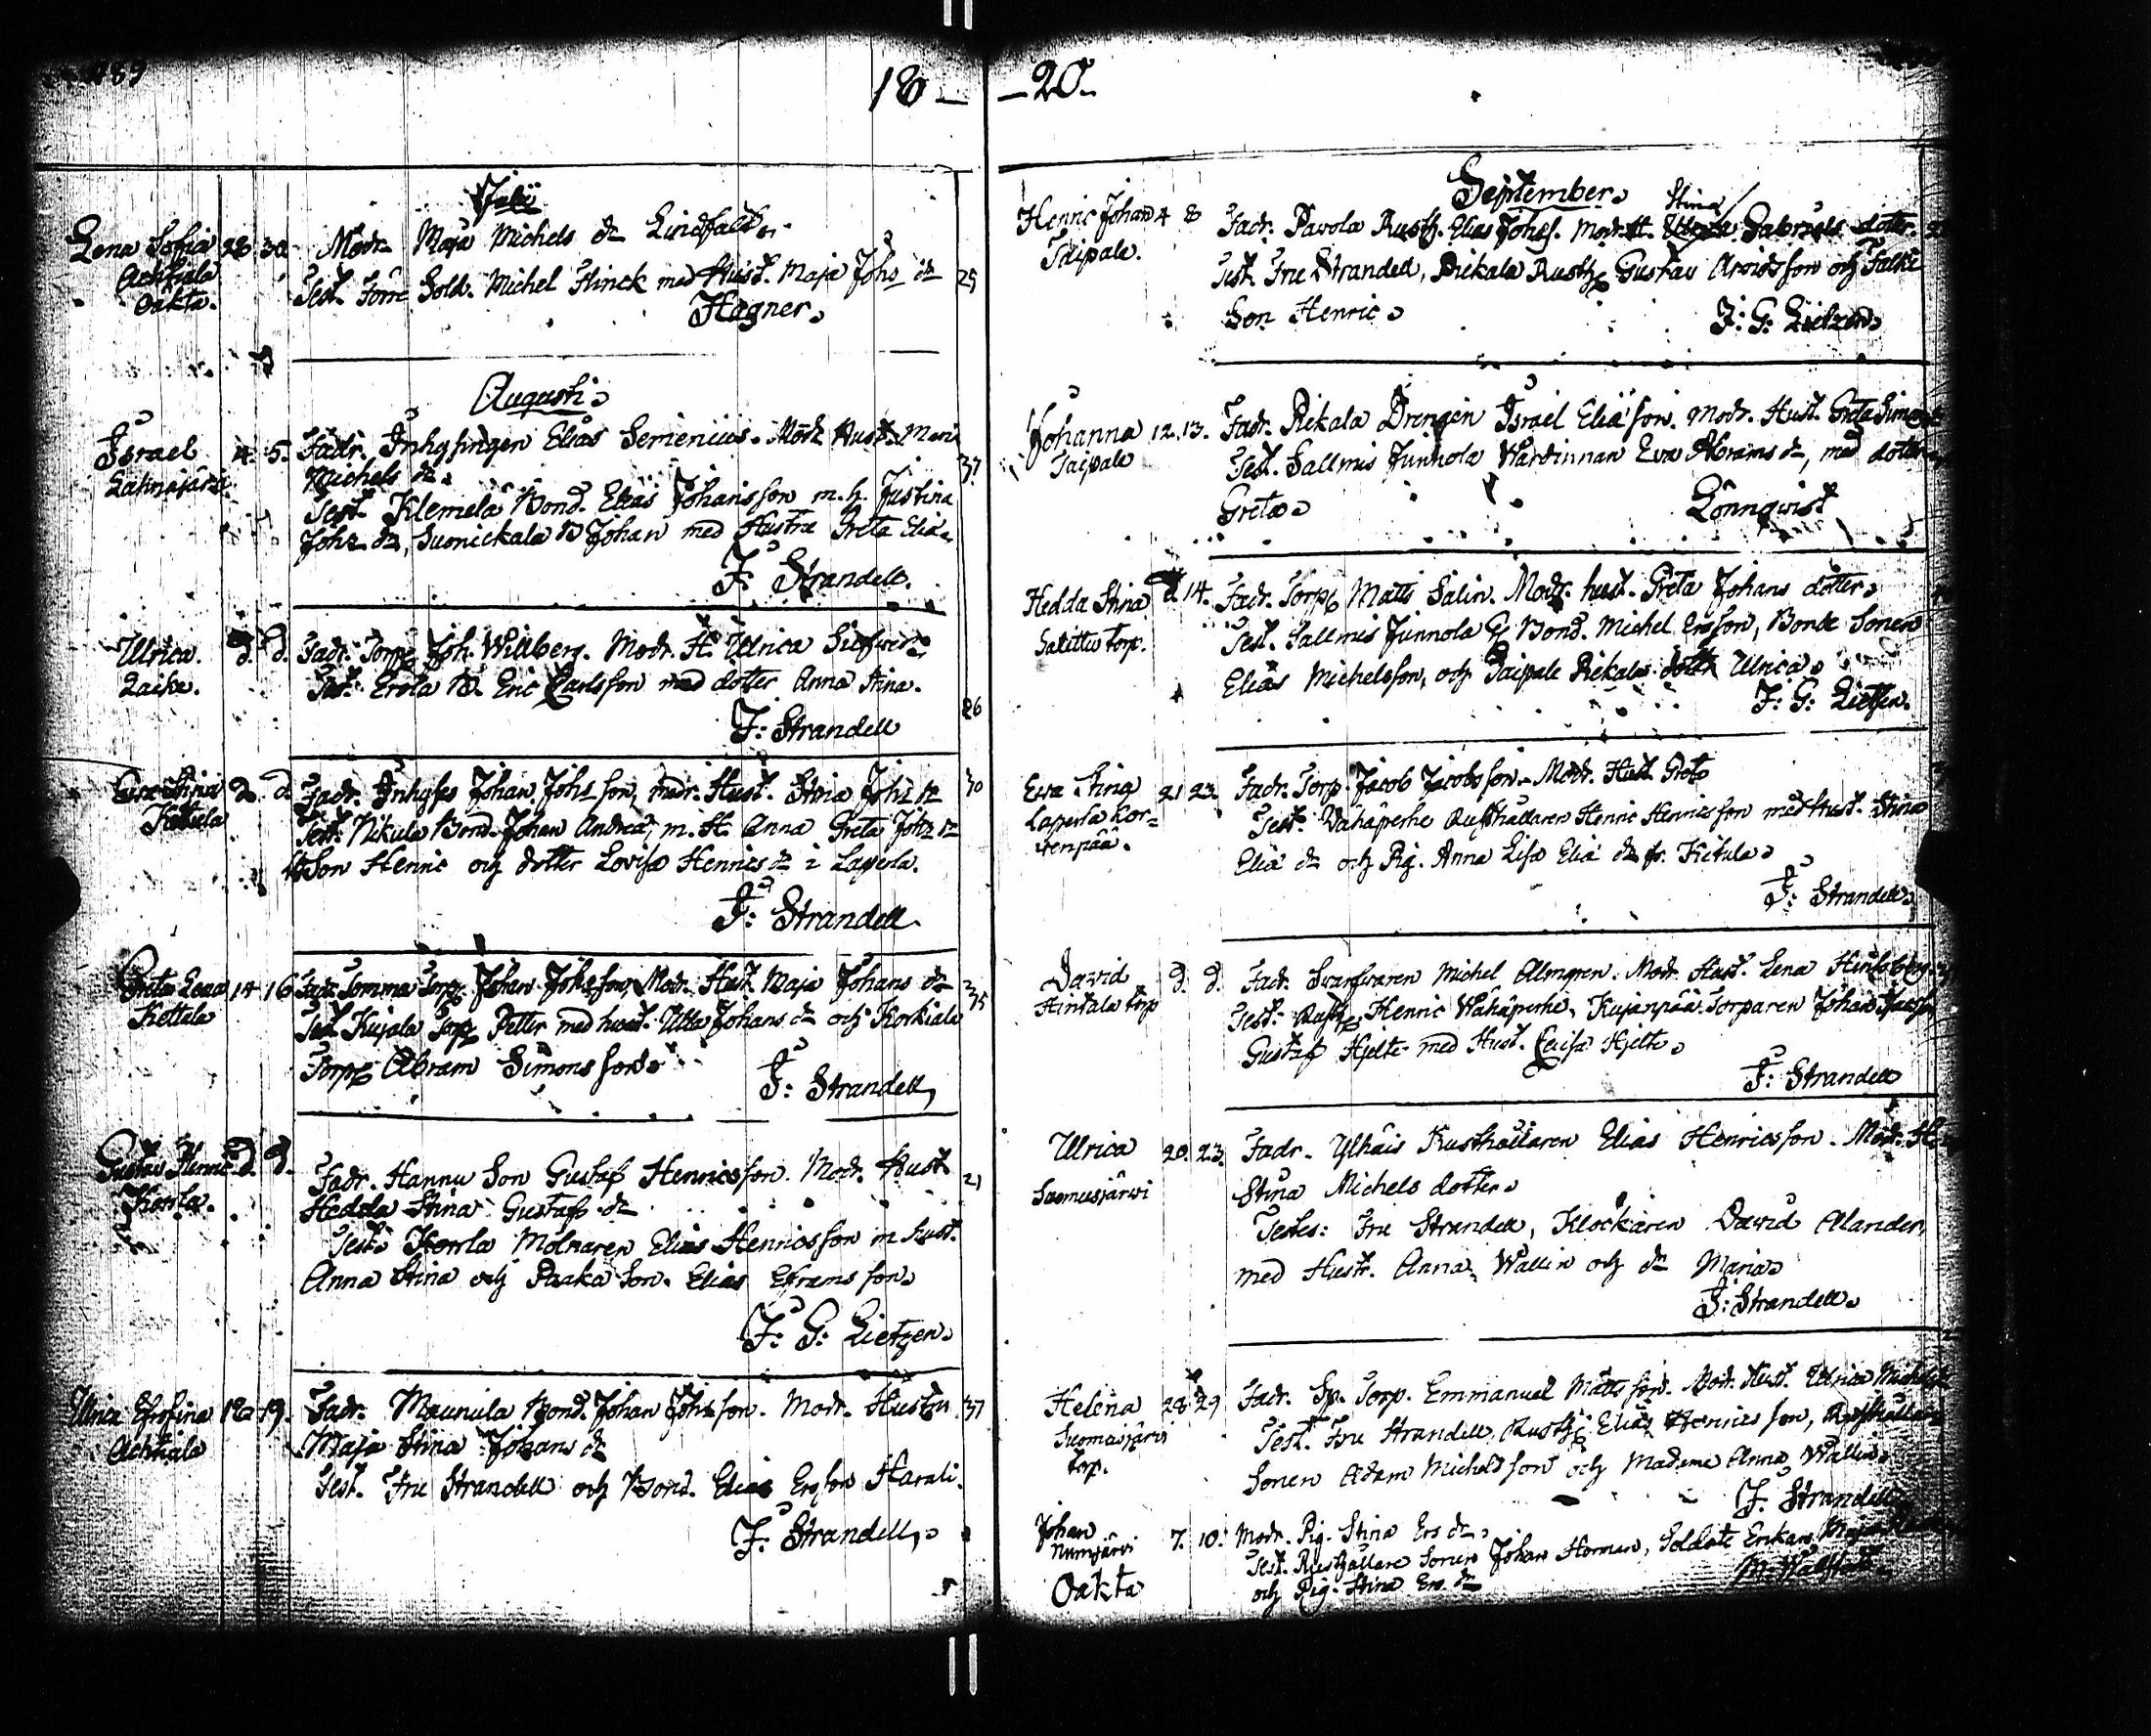 18 — — 20 —
Julii
Lena Sofia 28 30 Modr. Maja Michels dr Lindfall
Achkiala
oäkta.
Test. Förre Sold. Michel Flinck med Hust. Maja Johs dr 25
Hagner
Augusti
Israel 4. 5. Fadr. Inhysingen Elias Semenius. Modr Hust. Maria
Michels dr. 37
Test. Klemelä Bond. Elias Johansson m. h. Justina
Johs dr, Suonickala B Johan med Hustru Greta Eliæ
F: Strandell.
Ulrica. d. d. Fadr. Torp Joh. Willberg. Modr. H. Ulrica
Laike.
Test. Erola B. Eric Carlsson med dotter Anna Stina. 26
F: Strandell
d. d. Fadr. Inhyses Johan Johs son, modr. Hust. Stina Johs dr 30
Kettula
Test. Nikula Bond. Johan Andreæ, m. H. Anna Greta Johs dr
Son Henric och dotter Lovisa Henrics dr i Laperla.
F: Strandell
Greta Lena 14 16 Fadr. Tomma Torp Johan Johs son, Modr. Hust. Maja Johans dr 35
Kettula
Test. Kujala Torp Petter med hust. Ulla Johans dr och Korkiala
Torp Abram Simons son
F: Strandell
Gustav Henric d. d. Fadr. Hannu Son Gustaf Henricsson. Modr. Hust 21
Korrla.
Hedda Stina Gustafs dr
Test. Korrla Mölnaren Elias Henricsson m hust.
Anna Stina och Paaka Son. Elias Efraimsson
F: G: Lietzen
Ulrica Efrosina 18 19. Fadr. Maunula Bond. Johan Johs son. Modr. Hustru 37
Achkiala
Maja Stina Johans dr
Test. Fru Strandell och Bond. Elias Ersson Harali.
F: Strandell
September
Stina
Henric Johan 4 8 Fadr. Pavola Rusth. Elias Johss. Modr. H. Gabriels dotter
Taipale.
Test. Fru Strandell, Pickala Rusth Gustav Arvidsson och Falke
Son Henric
F: G: Lietzen
Johanna 12. 13. Fadr. Rekala Drengen Israel Eliæ son. Modr. Hust. Greta Simons
Taipale
Test. Sallmis Junnola Wärdinnan Eva Abrams dr, med dotter
Greta
Lönnqvist
Hedda Stina d 14. Fadr. Torp Matts Salin. Modr. hust. Greta Johans dotter
Salittu torp.
Test. Sallmis Junnola Bond. Michel Ersson, Bonde Sonen
Elias Michelsson, och Taipale Rekala dotter Ulrica
F: G: Lietzen.
Eva Stina 21 23 Fadr. Torp. Jacob Jacobsson. Modr. Hust. Greta
Laperla Kor=
venpää.
Test. Vähäperhe Rusthållaren Henric Henricsson med Hust. Stina
Eliæ dr och Pig. Anna Lisa Eliæ dr fr. Kitula
F: Strandell
David d. d. Fadr. Svarfvaren Michel Almgren. Modr. Hust. Lena
Hintala torp
Test. Rusth Henric Wähäperhe, Kujanpää Torparen Johan
Gustaf Hjelt med Hust. Lisa Hjelt
F: Strandell
Ulrica 20. 23. Fadr. Ylhäis Rusthållaren Elias Henricsson. Modr. H.
Suomusjärvi
Stina Michels dotter
Testes: Fru Strandell, Klockaren David Alander,
med Hustr. Anna Wallin och dr Maria
F: Strandell
Helena 28. 29 Fadr. Sp. Torp. Emmanuel Mattsson. Modr. Hust. Ulrica Michels
Suomusjärvi
torp.
Test. Fru Strandell, Rusth Elias Henricsson, Rusthållare
Sonen Adam Michelsson och Madame Anna Wallin
F: Strandell
Johan 7. 10. Modr. Pig. Stina Ers dr
Numjärvi
Test. Rusthållare Sonen Johan Homan, Soldats Enkan Maja
Oäkta och Pig. Stina Ers dr